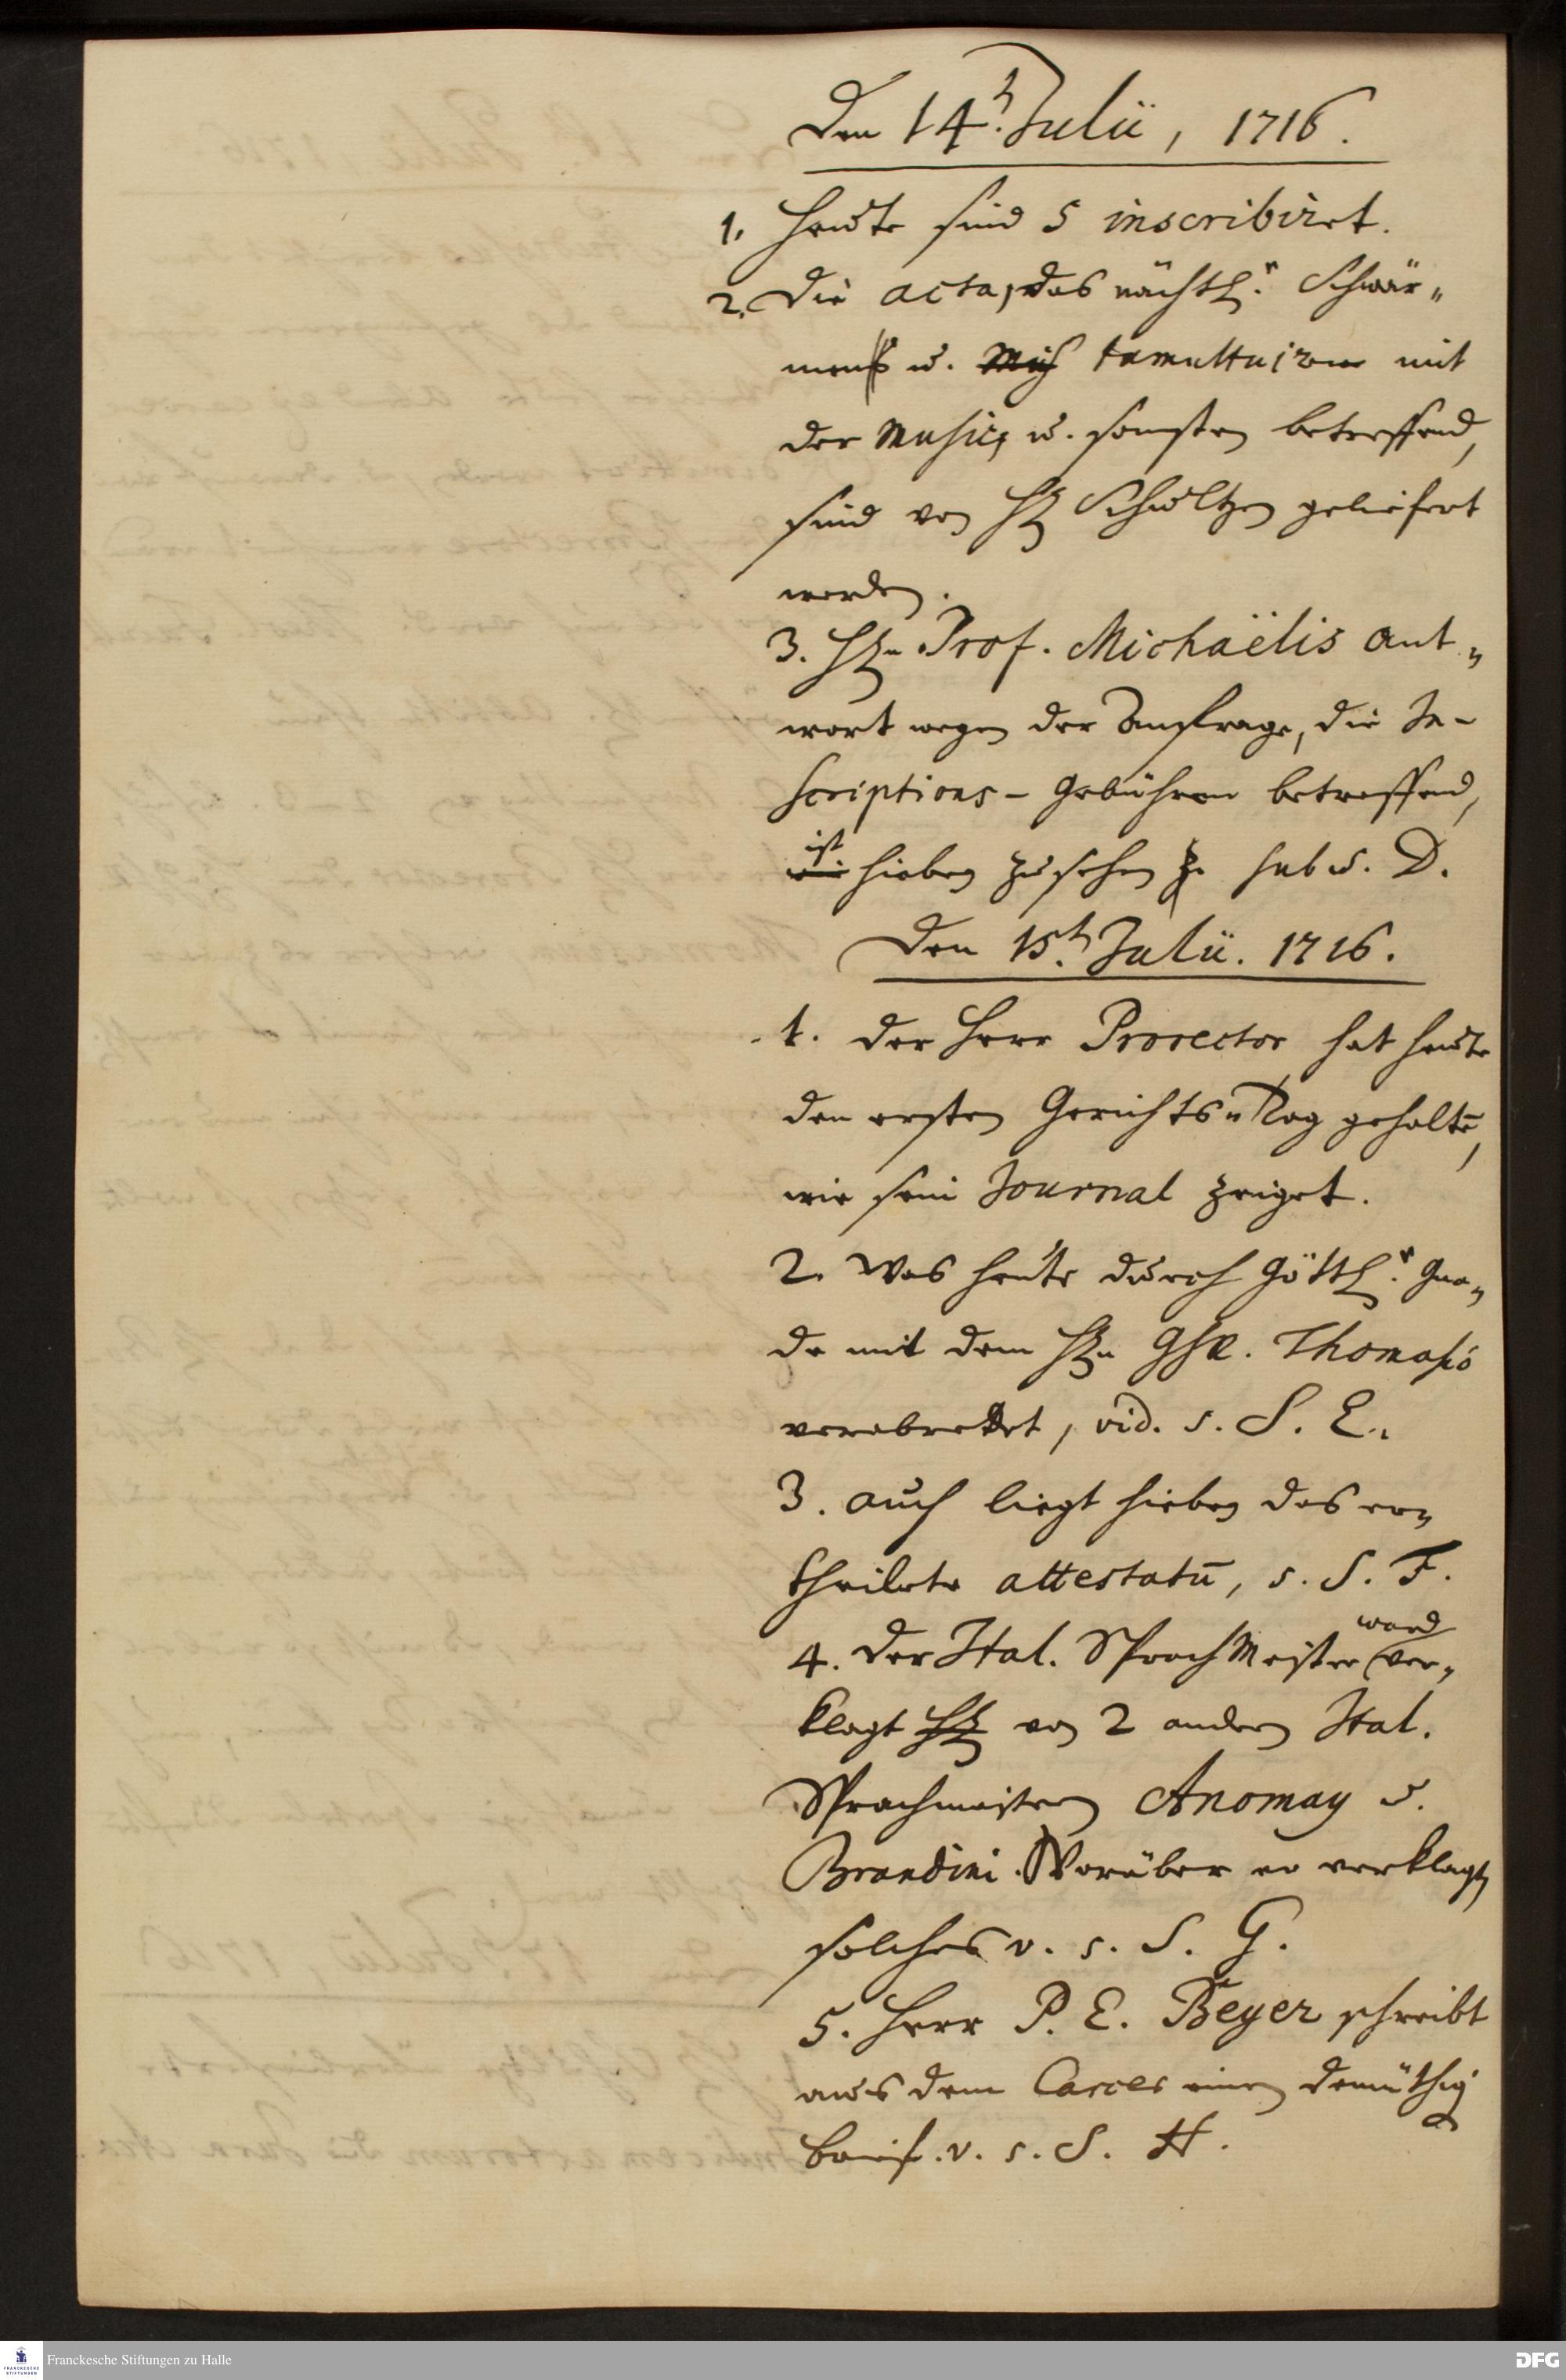 Den 14. Julii, 1716.
1. Heute sind 5 inscribiret.
2. Die acta, das nächtl. Schwär-
men u. tumultuiren mit
der Music, u. sonsten betreffend,
sind von H. Schultzen geliefert
worden.
3. Hn. Prof. Michaëlis Ant-
wort wegen der Anfrage, die In-
scriptions-Gebühren betreffend,
ist hiebey zu sehen sub D.
Den 15. Julii. 1716.
1. Der Herr Prorector hat heute
den ersten Gerichts-Tag gehalten,
wie sein Journal zeiget.
2. Was heute durch Göttl. Gna-
de mit dem Hn. GhR. Thomasio
verabredet, vid. s. S. E.
3. Auch liegt hiebey das er-
theilete attestatū, s. S. F.
4. Der Ital. SprachMeister ward ver-
klagt von 2 andern Ital.
Sprachmeistern Anomay u.
Brandini. Worüber er verklagt,
solches v. s. S. G.
5. Herr P. E. Beyer schreibt
aus dem Carcer einen demüthig
brief. v. s. S. H.
FRANCKESCHE STIFTUNGEN
Franckesche Stiftungen zu Halle
DFG